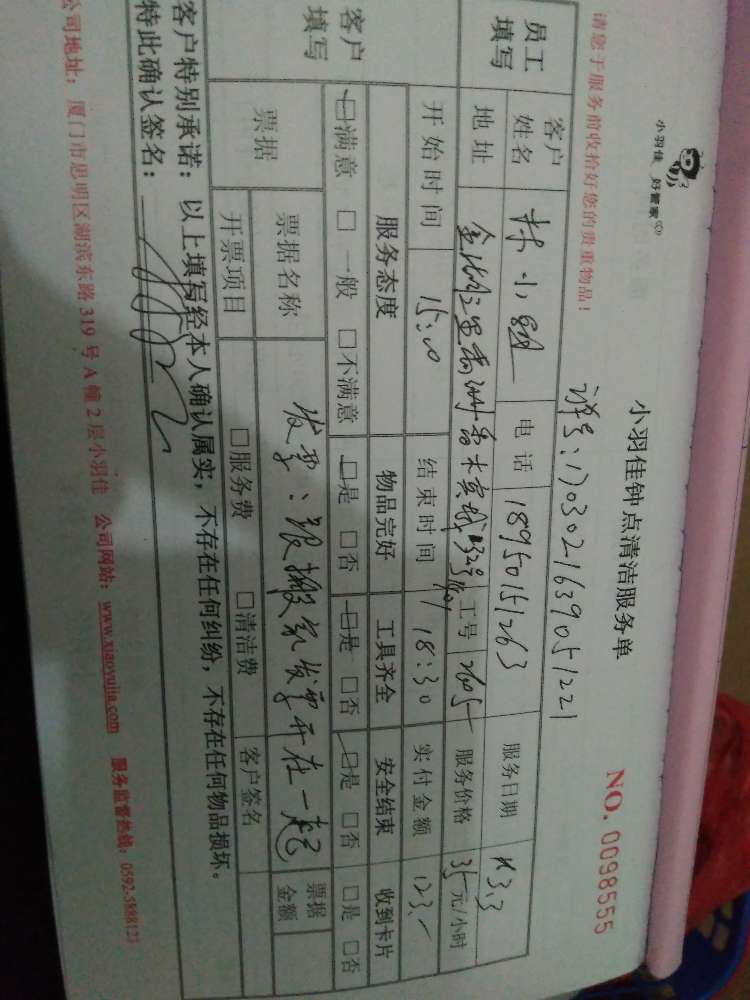 小羽佳 好管家
小羽佳钟点清洁服务单
NO. 0098555
请您于服务前收拾好您的贵重物品！
单号：1703021639051221
员工填写
客户姓名 林小 电话 18950151263 服务日期 3.3
地址 工号 2605 服务价格 35元/小时
开始时间 15:10 结束时间 18:30 实付金额 123.-
客户填写
服务态度 物品完好 工具齐全 安全结束 收到卡片
☑满意 □一般 □不满意 ☑是 □否 ☑是 □否 ☑是 □否 □是 □否
票据 票据名称 发票：跟搬家发票开在一起 票据金额
开票项目 □服务费 □清洁费 客户签名
客户特别承诺：以上填写经本人确认属实，不存在任何纠纷，不存在任何物品损坏。
特此确认签名：
公司地址：厦门市思明区湖滨东路319号A幢2层小羽佳 公司网站：www.xiaoyujia.com 服务监督热线：0592-5888123